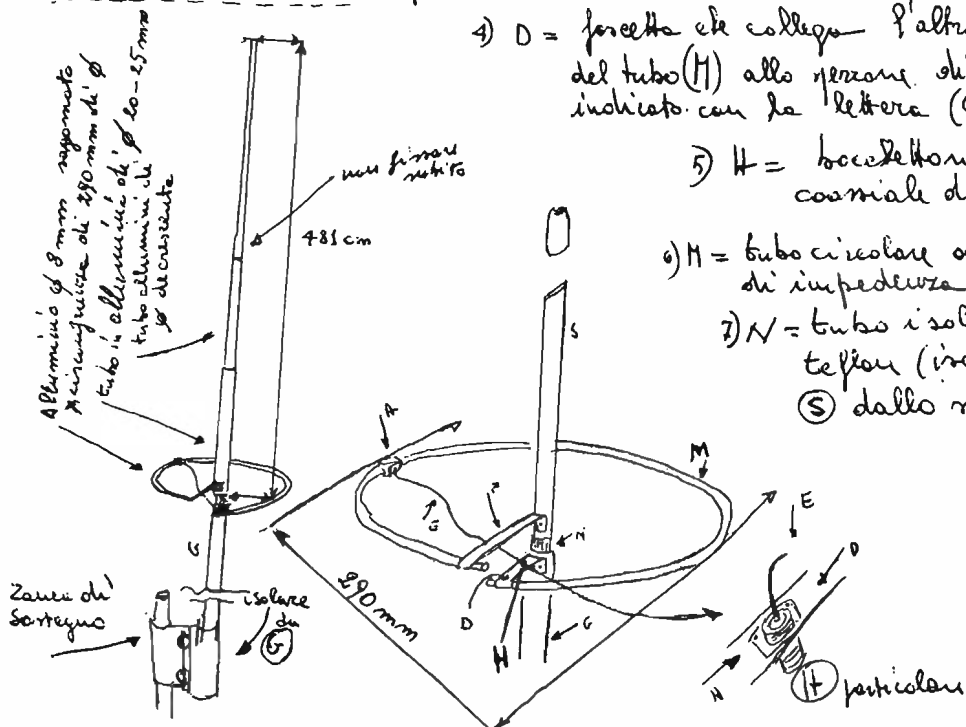 4) D = forcetta che collega l'altr
del tubo (M) allo spezzone di
indicato con la lettera (
5) H = bocchettone
coassiale d
6) M = tubo circolare a
di impedenza
7) N = tubo isol
teflon (iso
(S) dallo s
Alluminio ø 8 mm sagomato
a circonferenza di 290 mm di ø
tubo in alluminio di ø 20-25 mm
tubo alluminio di
ø decrescente
non fissare
subito
481 cm
S
A
M
E
N
E
D
G
290 mm
D
G
H
N
H particolare
Zanca di
sostegno
isolare
da
G